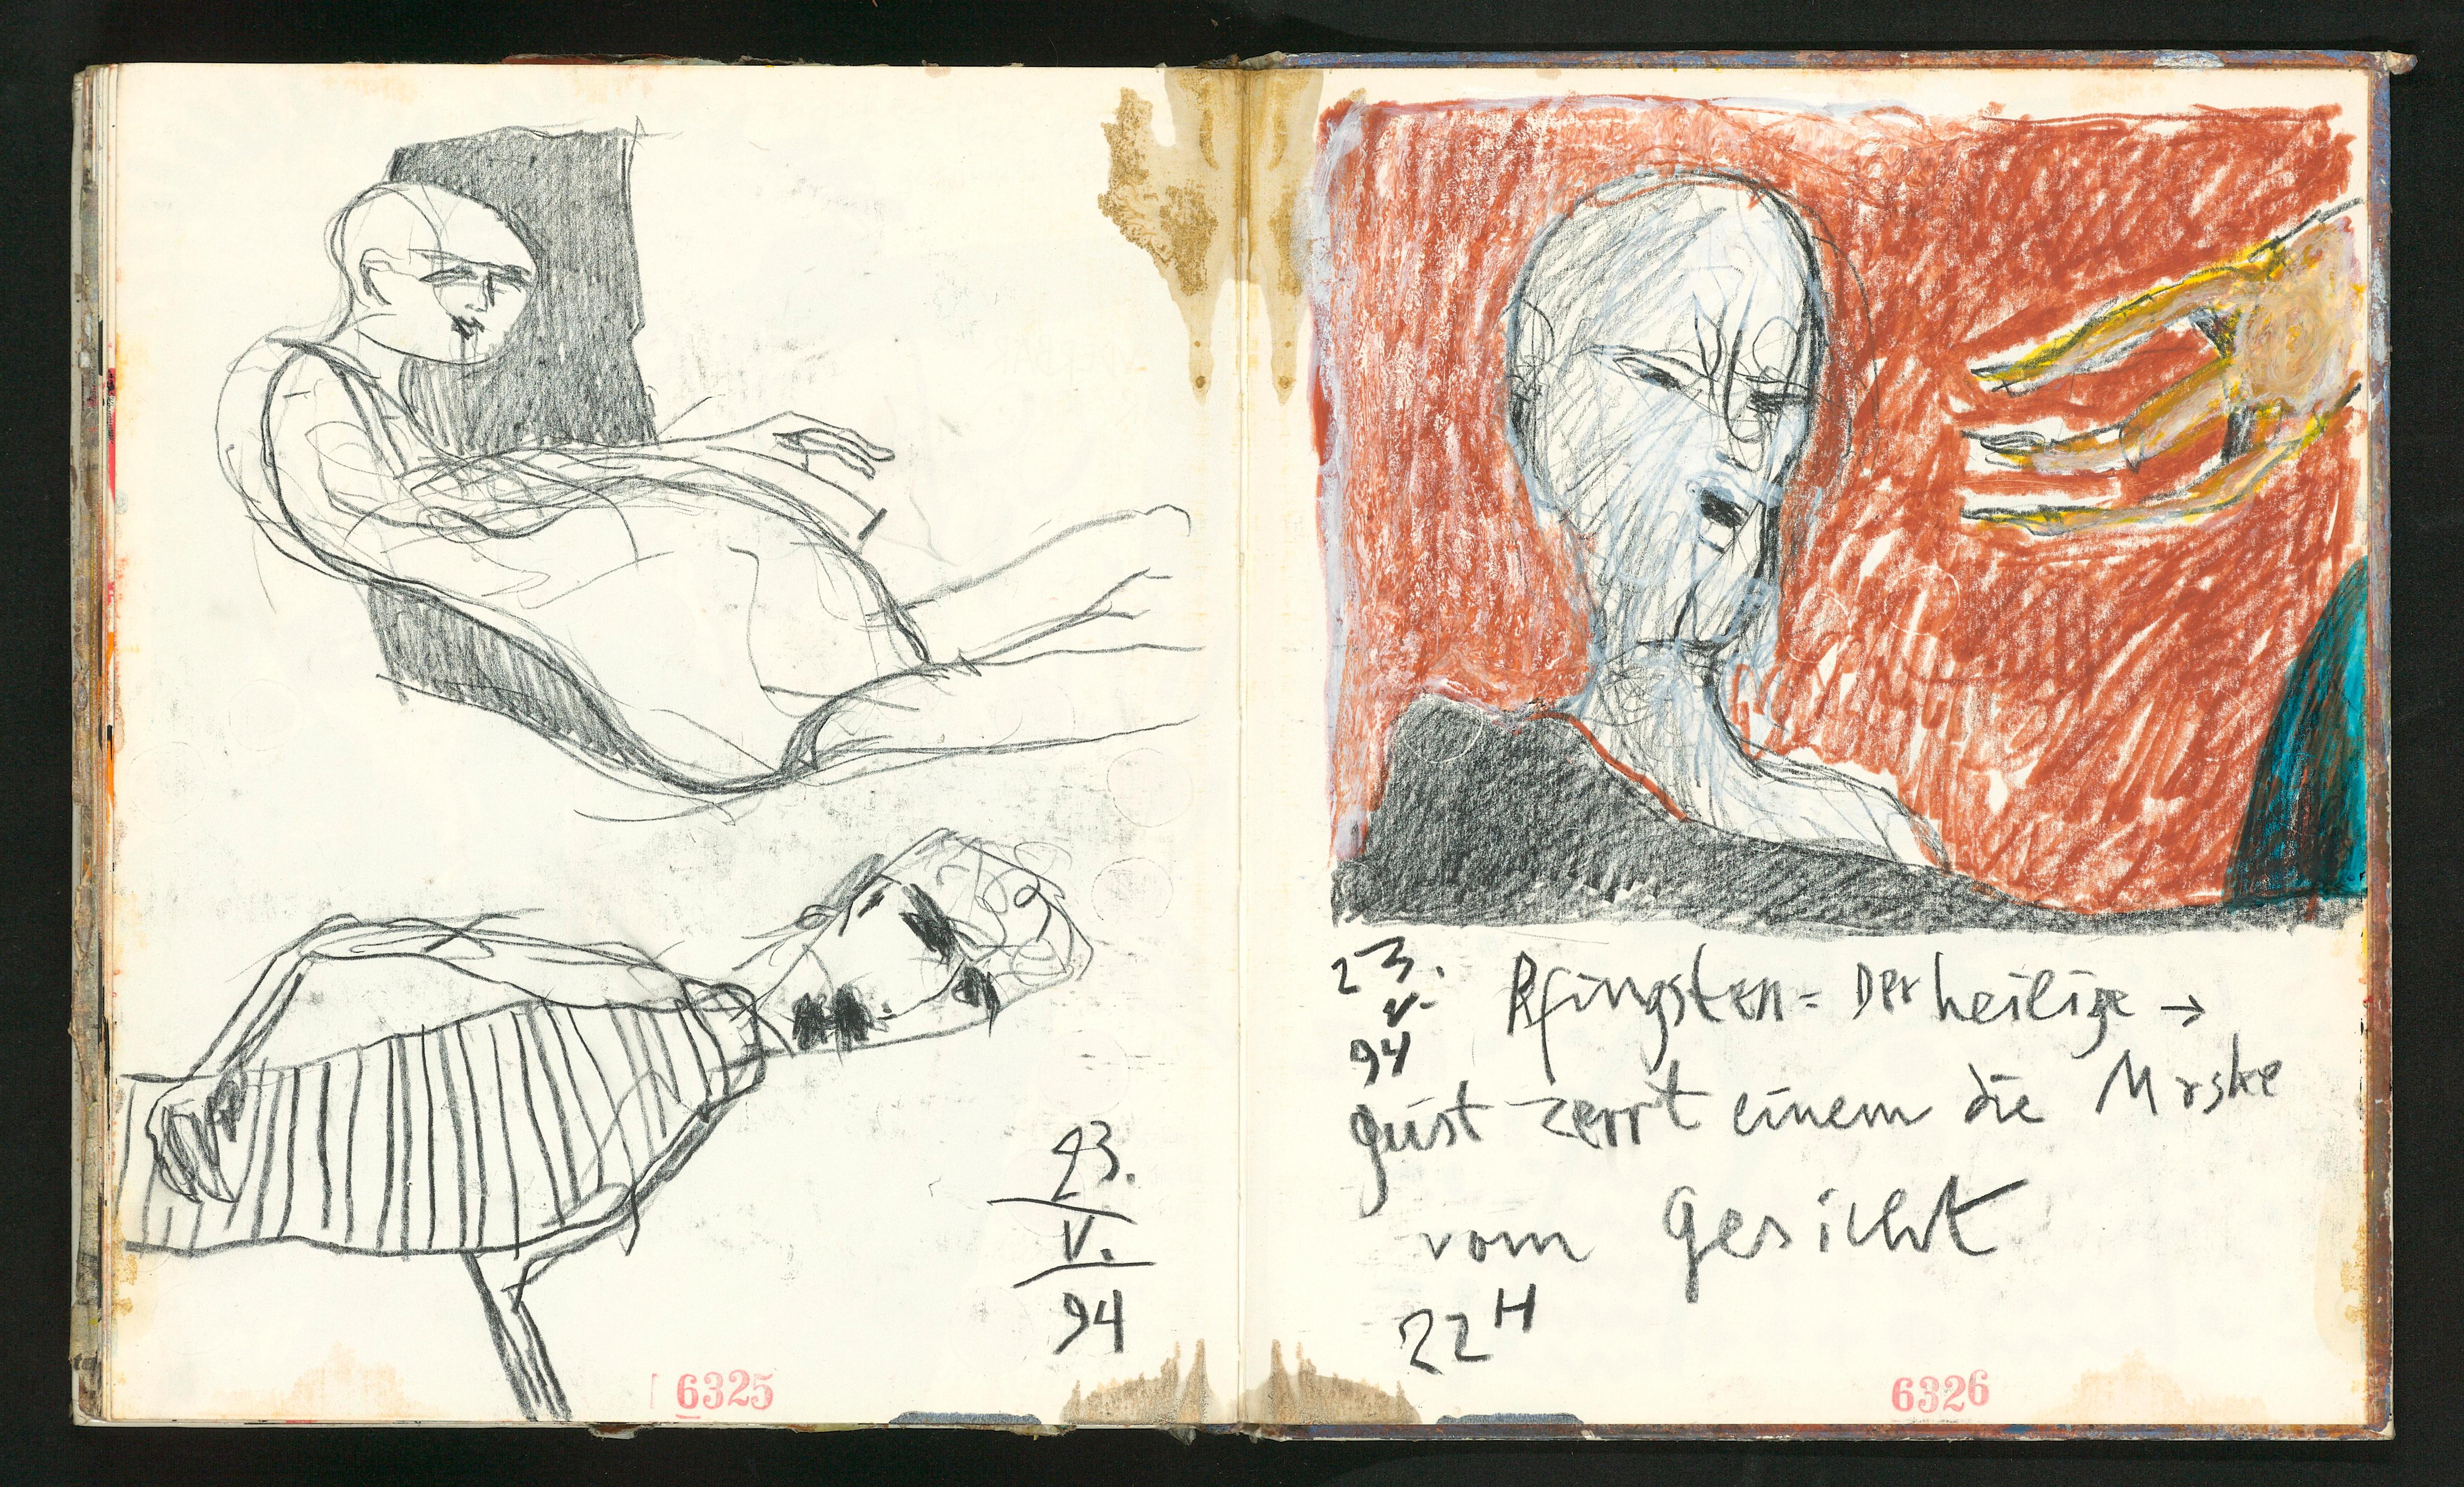 23.
V.
94
6325
23.
V.
94
Pfingsten = Der heilige →
geist zerrt einem die Maske
vom Gesicht
22H
6326